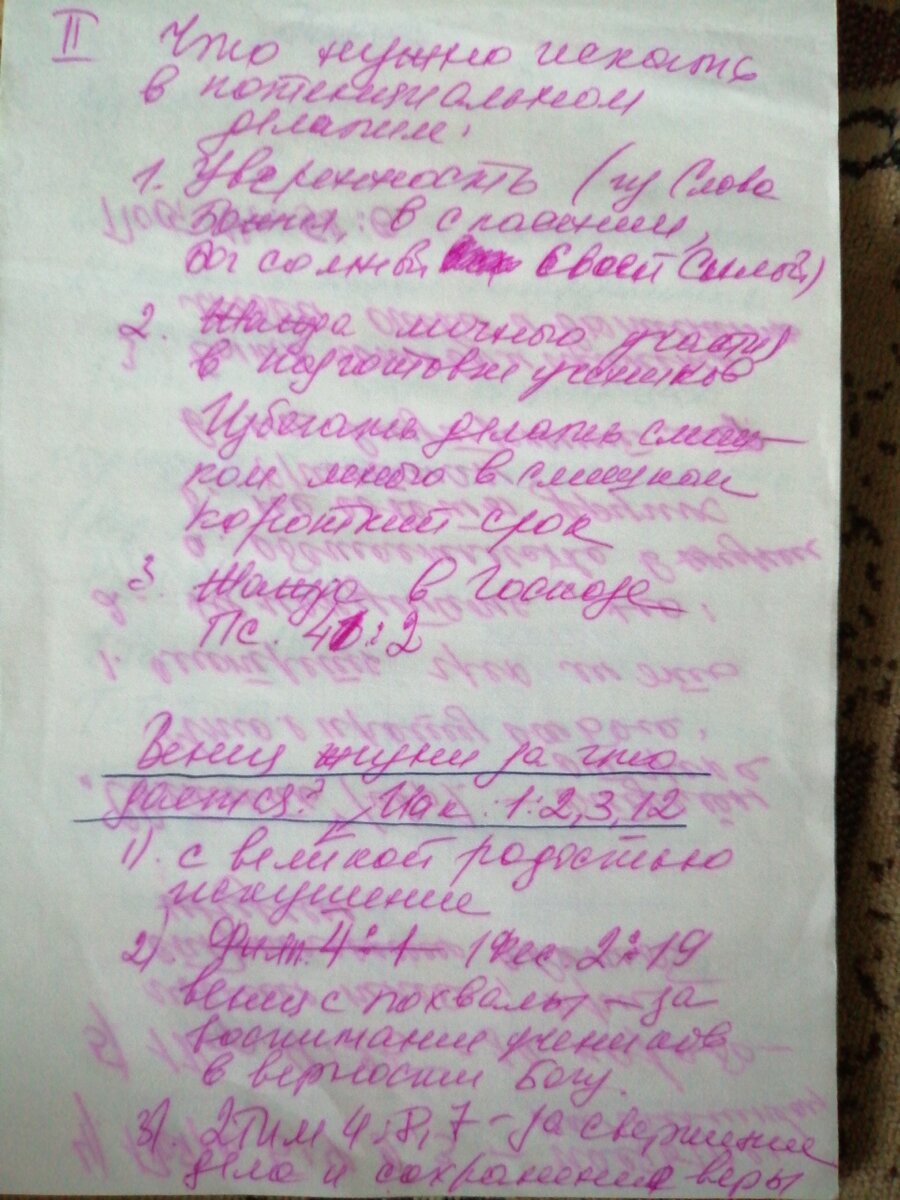 II Что нужно искать
в потенциальном
делателе:
1. Уверенность (из Слова
Божия, в спасении,
Бог со мной, своей силой)
2. Жажда личного участия
в подготовке учеников
Избегать делать слиш-
ком много в слишком
короткий срок
3. Жажда в Господе
Пс. 41:2
Венец жизни за что
дается? Иак. 1:2,3,12
1). с великой радостью
искушение
2). Фил. 4:1 1Фес. 2:19
венец похвалы – за
воспитание учеников
в верности Богу.
3). 2Тим 4:8,7 – за свершение
дела и сохранение веры